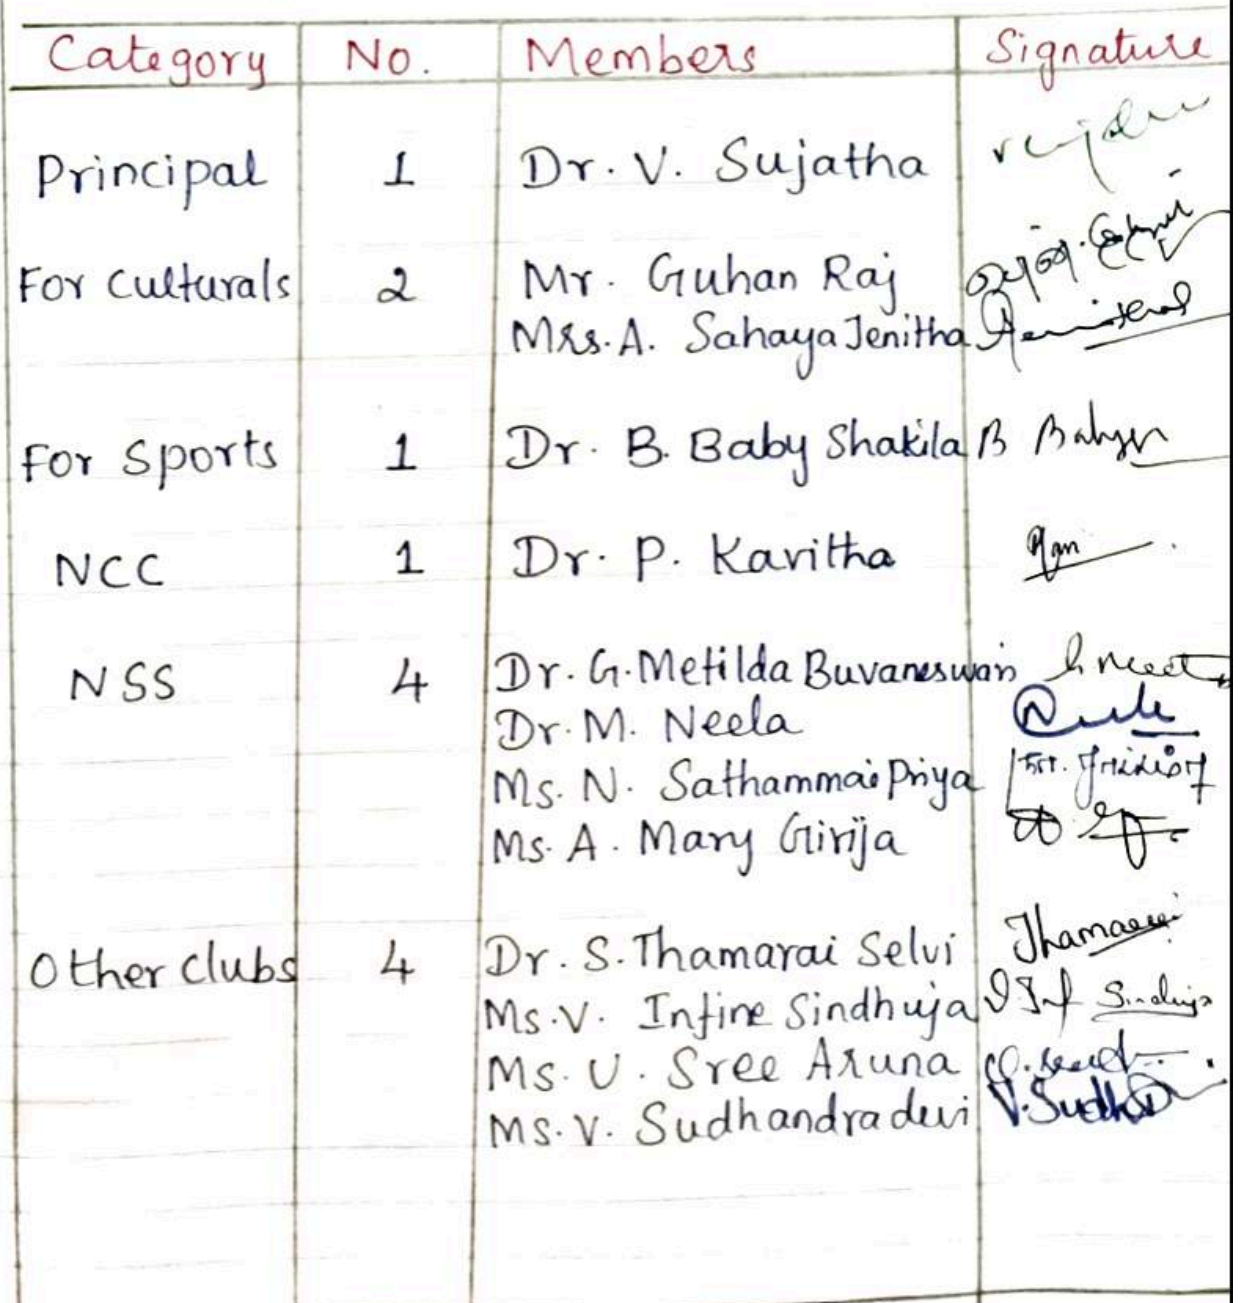 Category No. Members Signature
Principal 1 Dr. V. Sujatha
For Culturals 2 Mr. Guhan Raj
Mrs. A. Sahaya Jenitha
For Sports 1 Dr. B. Baby Shakila B
NCC 1 Dr. P. Kavitha
NSS 4 Dr. G. Metilda Buvaneswari
Dr. M. Neela
Ms. N. Sathammai Priya
Ms. A. Mary Girija
Other clubs 4 Dr. S. Thamarai Selvi
Ms. V. Infine Sindhuja
Ms. U. Sree Aruna
Ms. V. Sudhandradevi V. Sudha